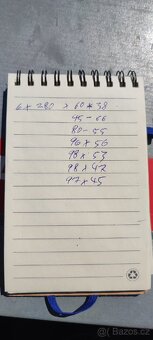 6 x 280 x 60 x 38
45 - 66
80 - 55
96 x 56
98 x 53
98 x 42
97 x 45
Bazoš.cz